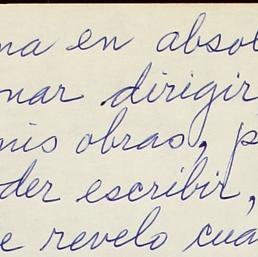 na en absol
onar dirigir
mis obras, p
der escribir,
e revelo cua